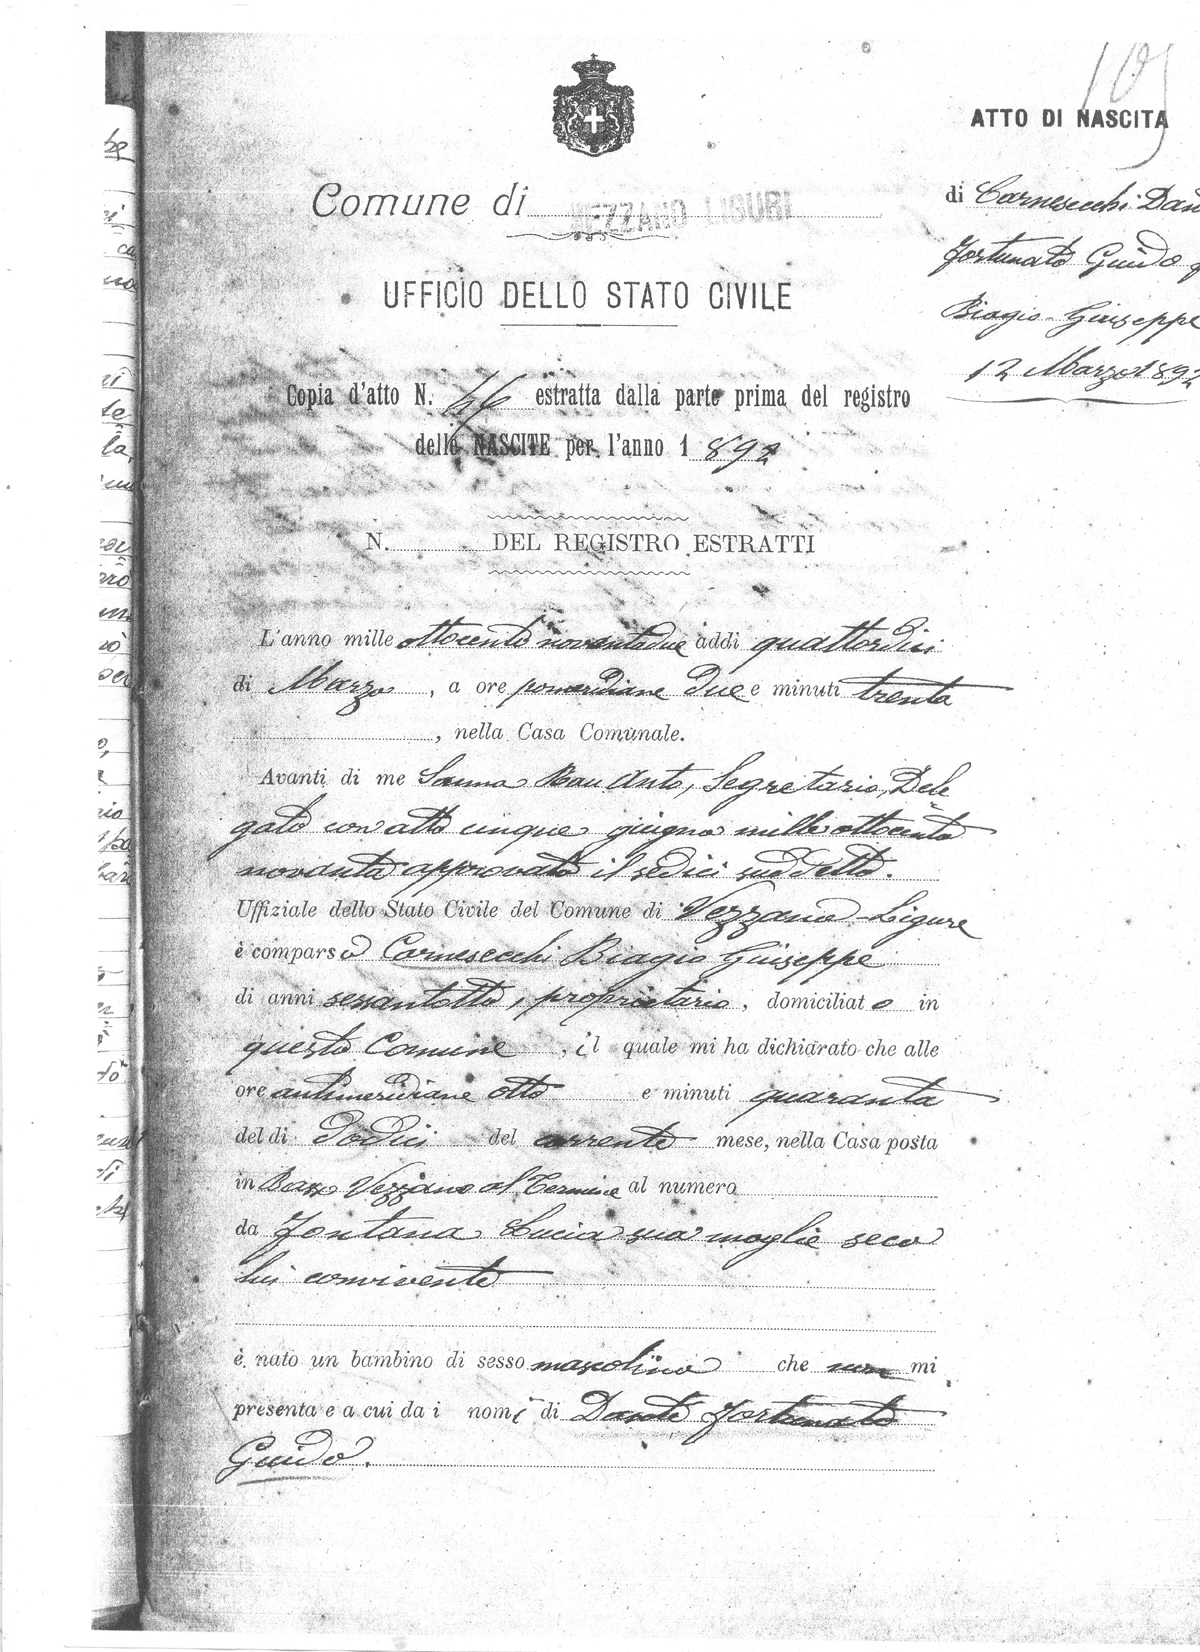 109
ATTO DI NASCITA
Comune di VEZZANO LIGURE
di Carnesecchi Dan
Fortunato Guido
Biagio Giuseppe
12 Marzo 1892
UFFICIO DELLO STATO CIVILE
Copia d'atto N. 46 estratta dalla parte prima del registro
delle NASCITE per l'anno 1892
N. DEL REGISTRO ESTRATTI
L'anno mille ottocento novantadue addi quattordici
di Marzo, a ore pomeridiane due e minuti trenta
, nella Casa Comunale.
Avanti di me Anto, Segretario, Dele
gato con atto cinque giugno mille ottocento
novanta approvato il sedici suddetto.
Uffiziale dello Stato Civile del Comune di Vezzano Ligure
è comparso Carnesecchi Biagio Giuseppe
di anni sessantotto, proprietario, domiciliato in
questo Comune, il quale mi ha dichiarato che alle
ore antimeridiane otto e minuti quaranta
del dì dodici del corrente mese, nella Casa posta
in Basso Vezzano al Termine al numero
da Fontana Lucia sua moglie seco
lui convivente
è nato un bambino di sesso mascolino che non mi
presenta e a cui da i nomi di Dante Fortunato
Guido.